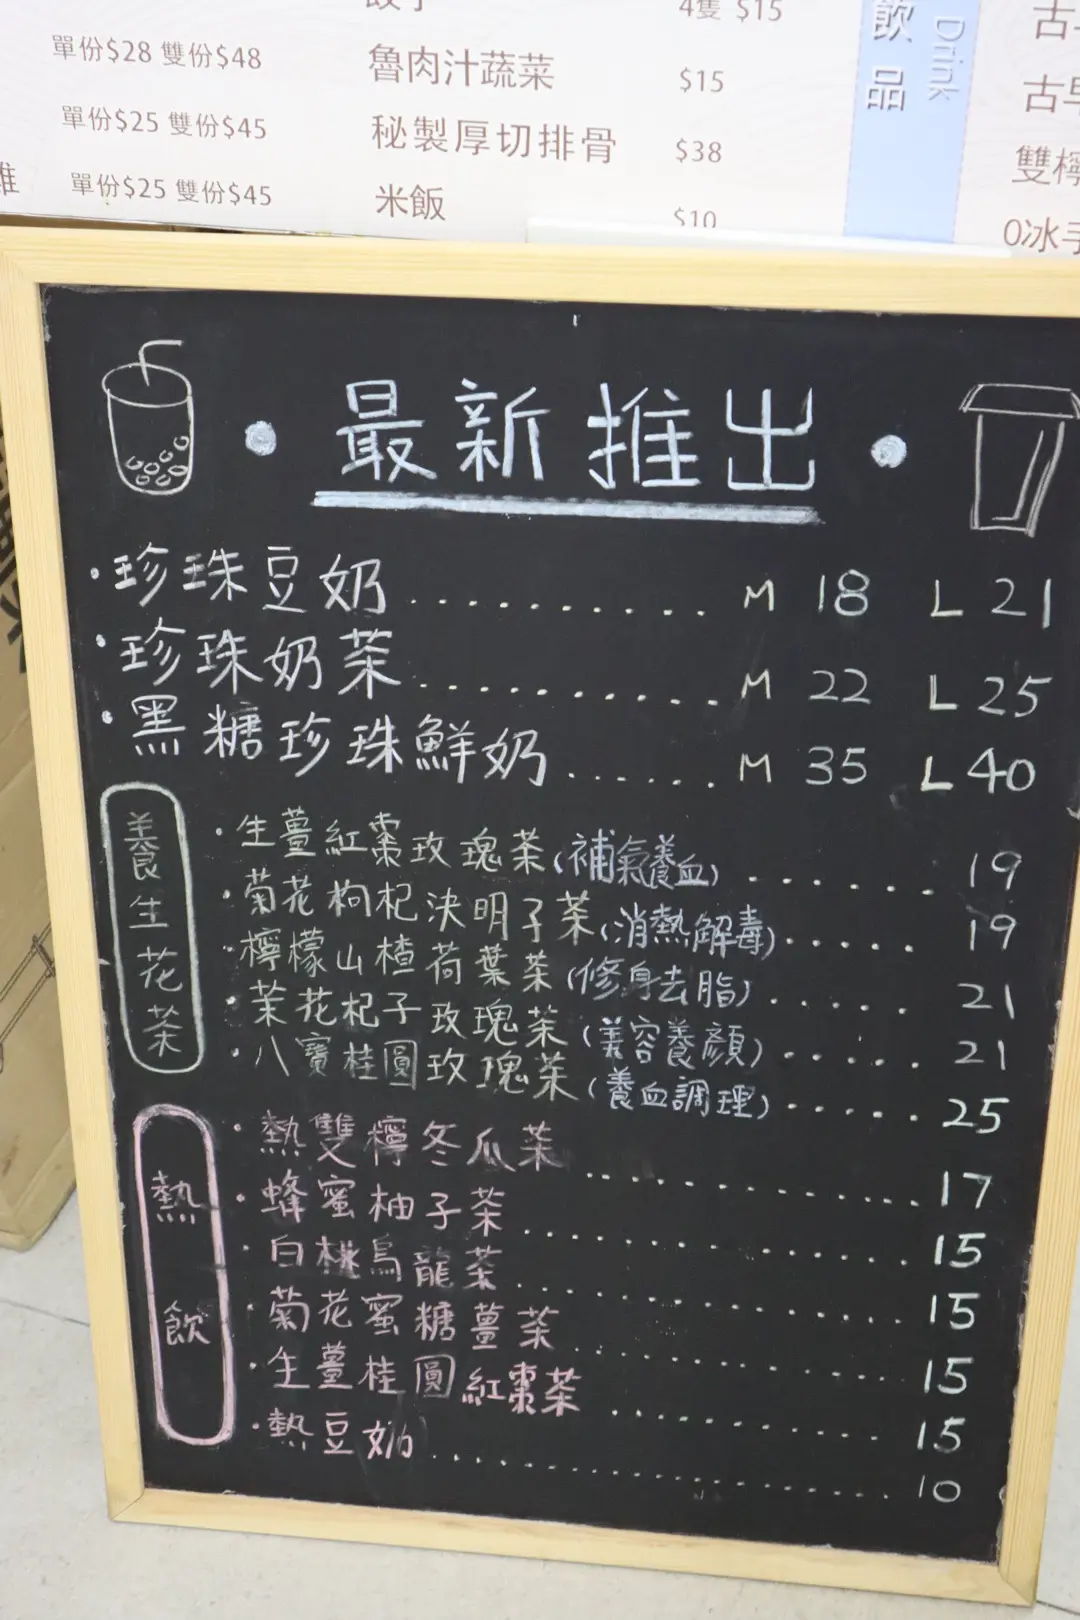 4隻 $15
單份$28 雙份$48
魯肉汁蔬菜 $15
單份$25 雙份$45
秘製厚切排骨 $38
單份$25 雙份$45
米飯 $10
飲品
Drink
0冰
・最新推出・
・珍珠豆奶.......... M 18 L 21
・珍珠奶茶.......... M 22 L 25
・黑糖珍珠鮮奶...... M 35 L 40
養生花茶
・生薑紅棗玫瑰茶(補氣養血)....... 19
・菊花枸杞決明子茶(消熱解毒)...... 19
・檸檬山楂荷葉茶(修身去脂)...... 21
・茉花杞子玫瑰茶(美容養顏)..... 21
・八寶桂圓玫瑰茶(養血調理)...... 25
熱飲
・熱雙檸冬瓜茶............ 17
・蜂蜜柚子茶.............. 15
・白桃烏龍茶.............. 15
・菊花蜜糖薑茶............ 15
・生薑桂圓紅棗茶.......... 15
・熱豆奶.................. 10